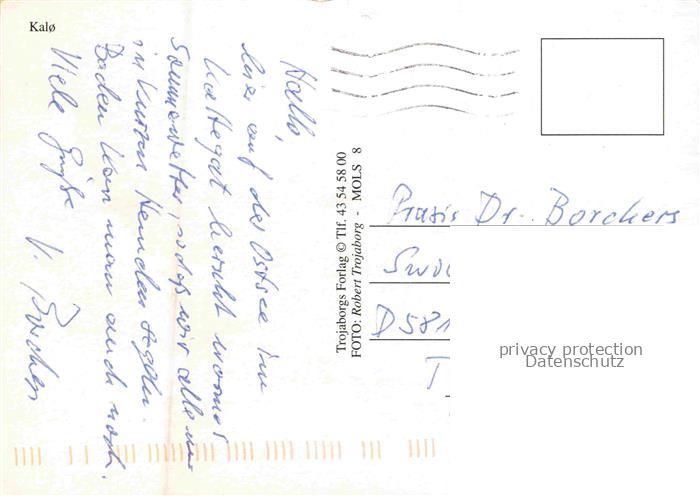 Kalø
Hallo,
hier auf der Ostsee im
Kattegat herrscht warmes
Sommerwetter, sodaß wir alle nur
in kurzen Hemden segeln.
Baden kann man auch noch.
Viele Grüße
V. Borchers
Trojaborgs Forlag © Tlf. 43 54 58 00
FOTO: Robert Trojaborg - MOLS 8
Praxis Dr. Borchers
D 581
T
privacy protection
Datenschutz